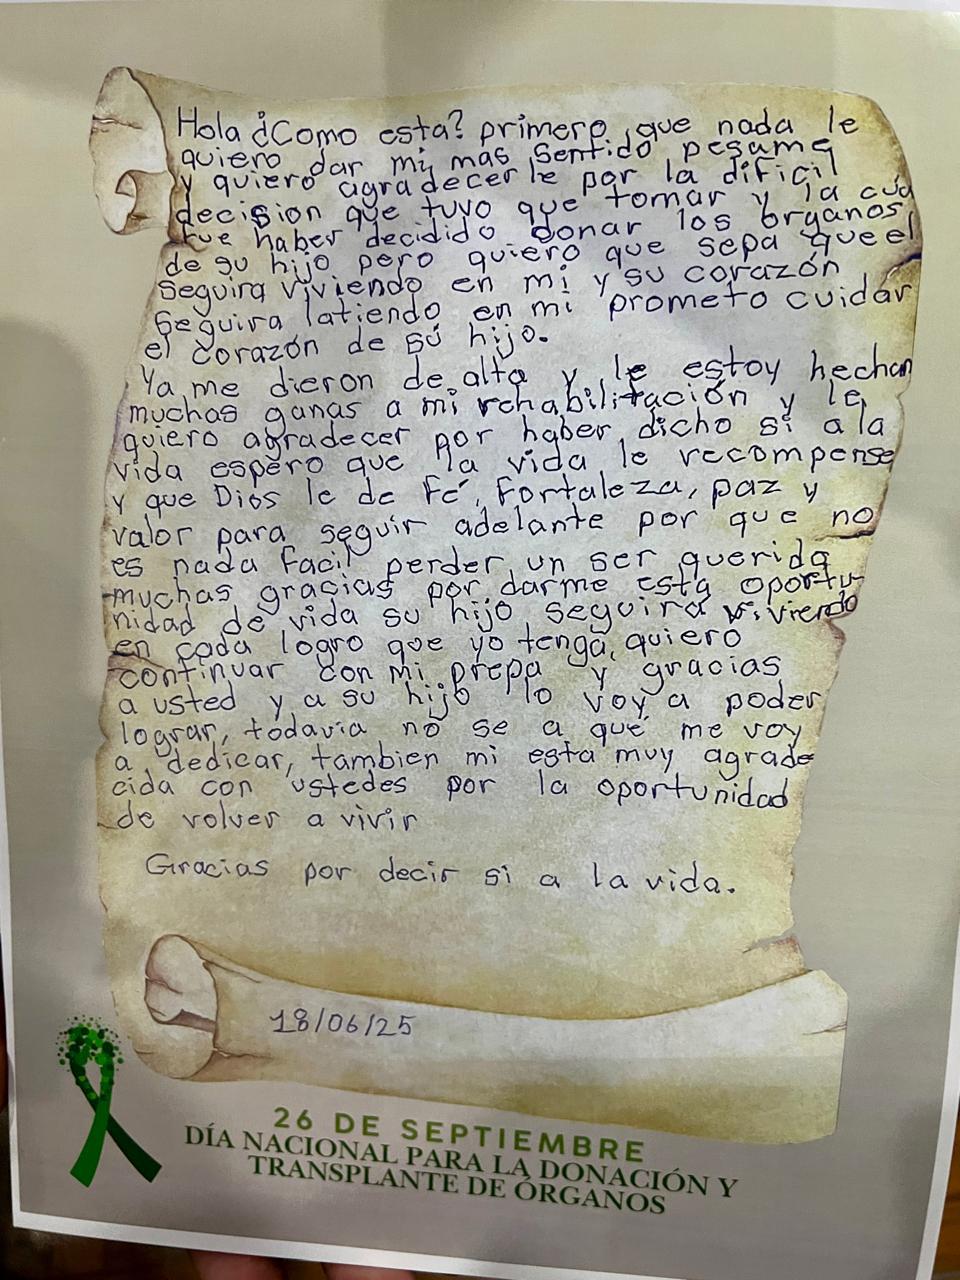 Hola ¿Como esta? primero que nada le
quiero dar mi mas sentido pesame
y quiero agradecerle por la dificil
decision que tuvo que tomar y la cua
fue haber decidido donar los órganos
de su hijo pero quiero que sepa que el
seguira viviendo en mi y su corazón
seguira latiendo en mi prometo cuidar
el corazón de su hijo.
Ya me dieron de alta y le estoy hechan
muchas ganas a mi rehabilitación y le
quiero agradecer por haber dicho si a la
vida espero que la vida le recompense
y que Dios le de Fé, Fortaleza, paz y
valor para seguir adelante por que no
es nada facil perder un ser querido
muchas gracias por darme esta oportu-
nidad de vida su hijo seguira viviendo
en cada logro que yo tenga, quiero
continuar con mi prepa y gracias
a usted y a su hijo lo voy a poder
lograr, todavia no se a que me voy
a dedicar, tambien mi esta muy agrade
cida con ustedes por la oportunidad
de volver a vivir
Gracias por decir si a la vida.
18/06/25
26 DE SEPTIEMBRE
DÍA NACIONAL PARA LA DONACIÓN Y
TRANSPLANTE DE ÓRGANOS